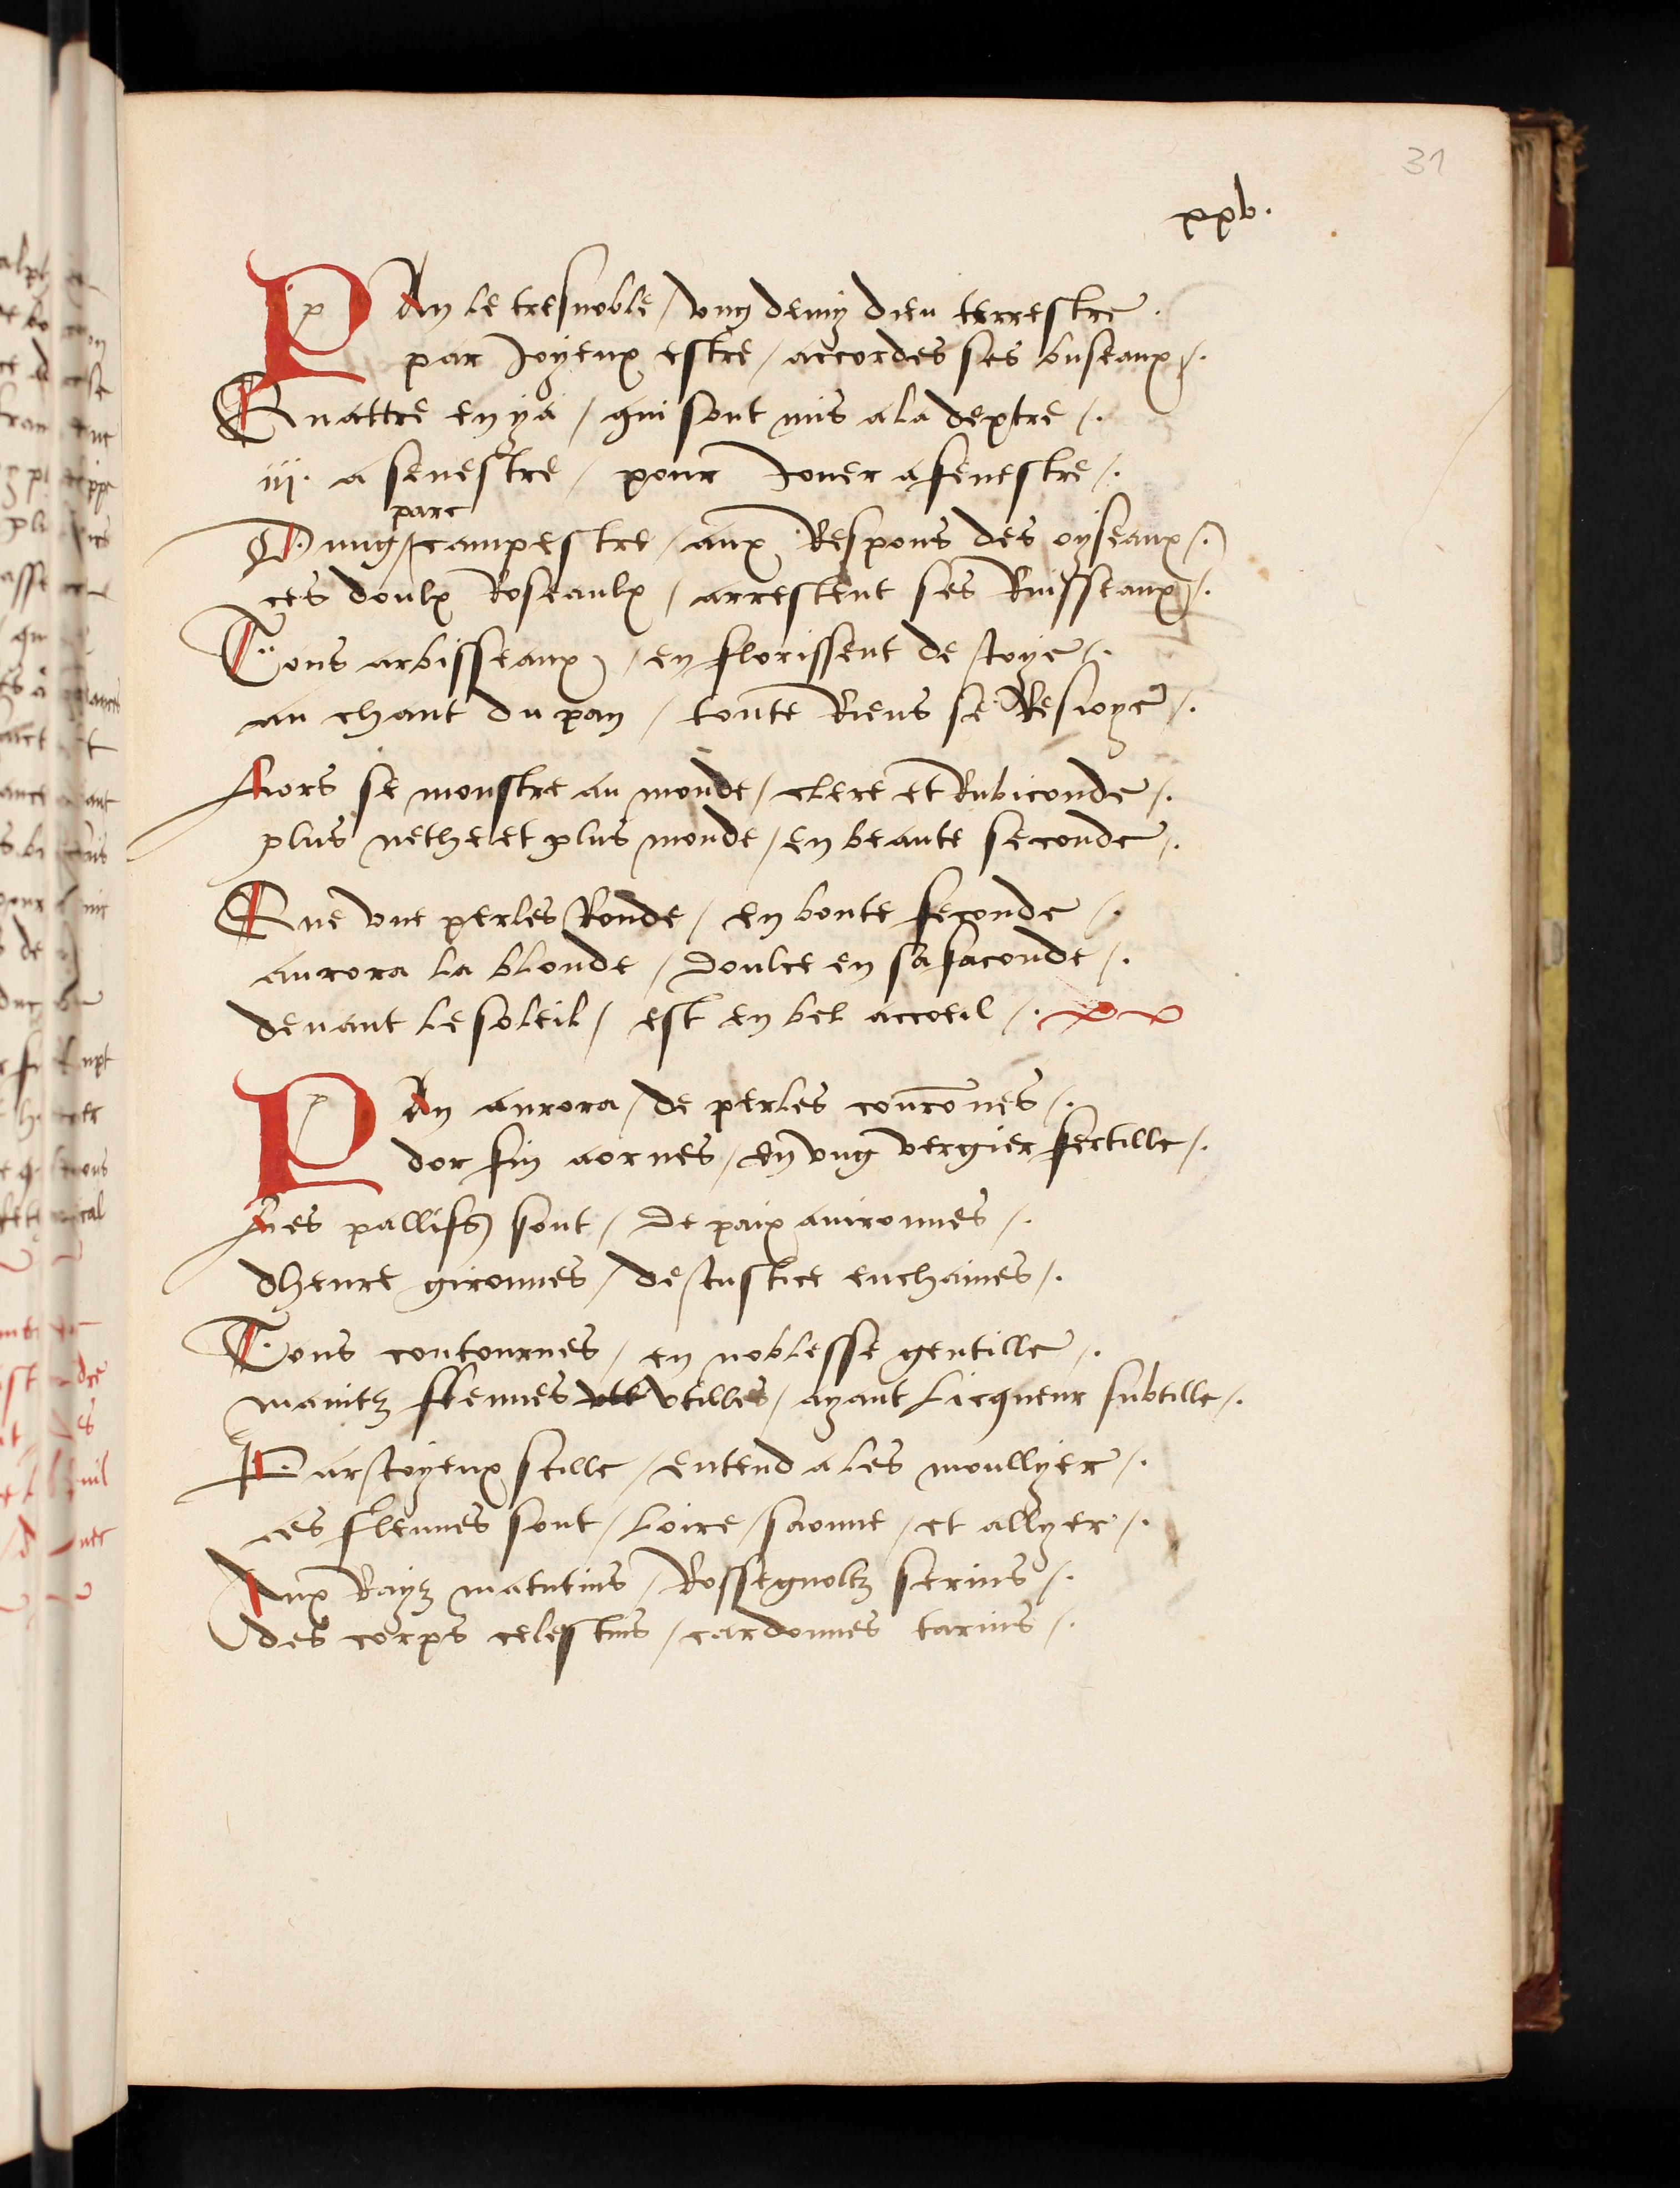 31
xxv.
PAn le tresnoble / vng demy dieu terrestre.
par Joyeux estre / accordes ses buseaux /.
Quattre en ya / qui sont mis a la dextre /.
iii. a senestre / pour Jouer a fenestre /.
parc
Dung campestre / aux Respons des oyseaux /.
ces doulx Roseaulx / arrestent ses Ruisseaux /.
Tous arbisseaux / en florissent de Joye /.
au chant du pan / toute Riens se Resioye /.
Lors se monstre au monde / clere et Rubiconde /.
plus nethe et plus monde / en beaute seconde /.
Que vne perles Ronde / en bonte feconde /.
aurora la blonde / doulce en sa faconde /.
deuant le soleil / est en bel accoeil /.
PAn aurora / de perles couronnes /.
dor fin aornes / en vng vergier fertille /.
Les palliss sont / de paix auironnes /.
dheure gironnes / de Justice enchaines /.
Tous contournes / en noblesse gentille /.
maintz fleuues vtilles / ayant Licqueur subtille /.
Par Joyeux stille / entend a les moullyer /.
ces fleuues sont / Loire / saonne / et allyer /.
Aux Rayz matutins / Rossegnoltz serins /.
des corps celestins / cardonnes tarins /.